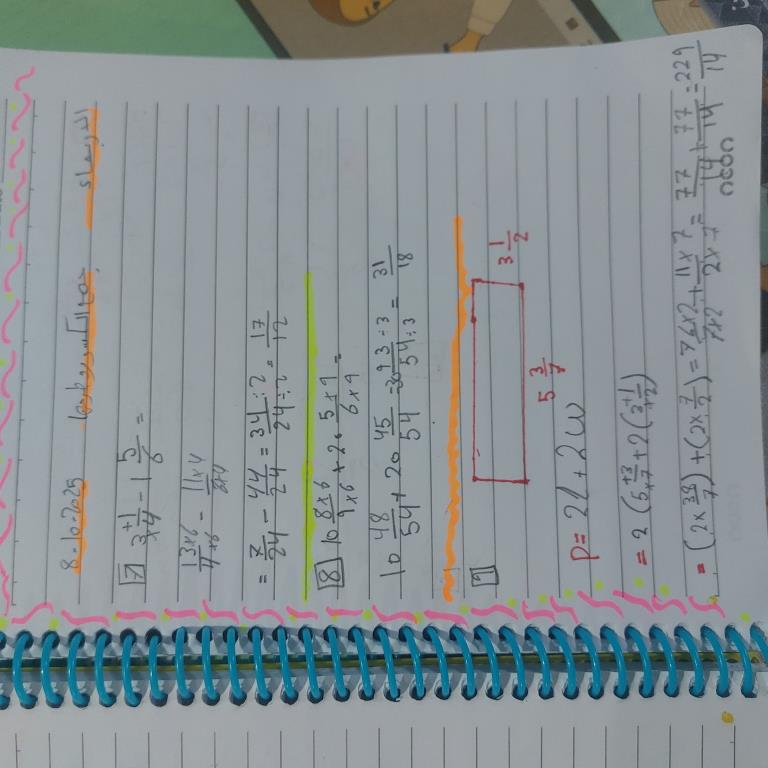 8-10-2025 الاربعاء
[7] 3 1/4 - 1 5/6 =
13×6/4×6 - 11×4/6×4
= 7/24 - 44/24 = 34÷2/24÷2 = 17/12
[8] 10 8×6/9×6 + 20 5×9/6×9 =
10 48/54 + 20 45/54 = 30 93÷3/54÷3 = 31/18
[1]
3 1/2
5 3/7
P = 2l + 2w
= 2 (5 3/7) + 2 (3 1/2)
= (2× 38/7) + (2× 7/2) = 76×2/7×2 + 11×7/2×7 = 77/14 + 77/14 = 229/14
neon